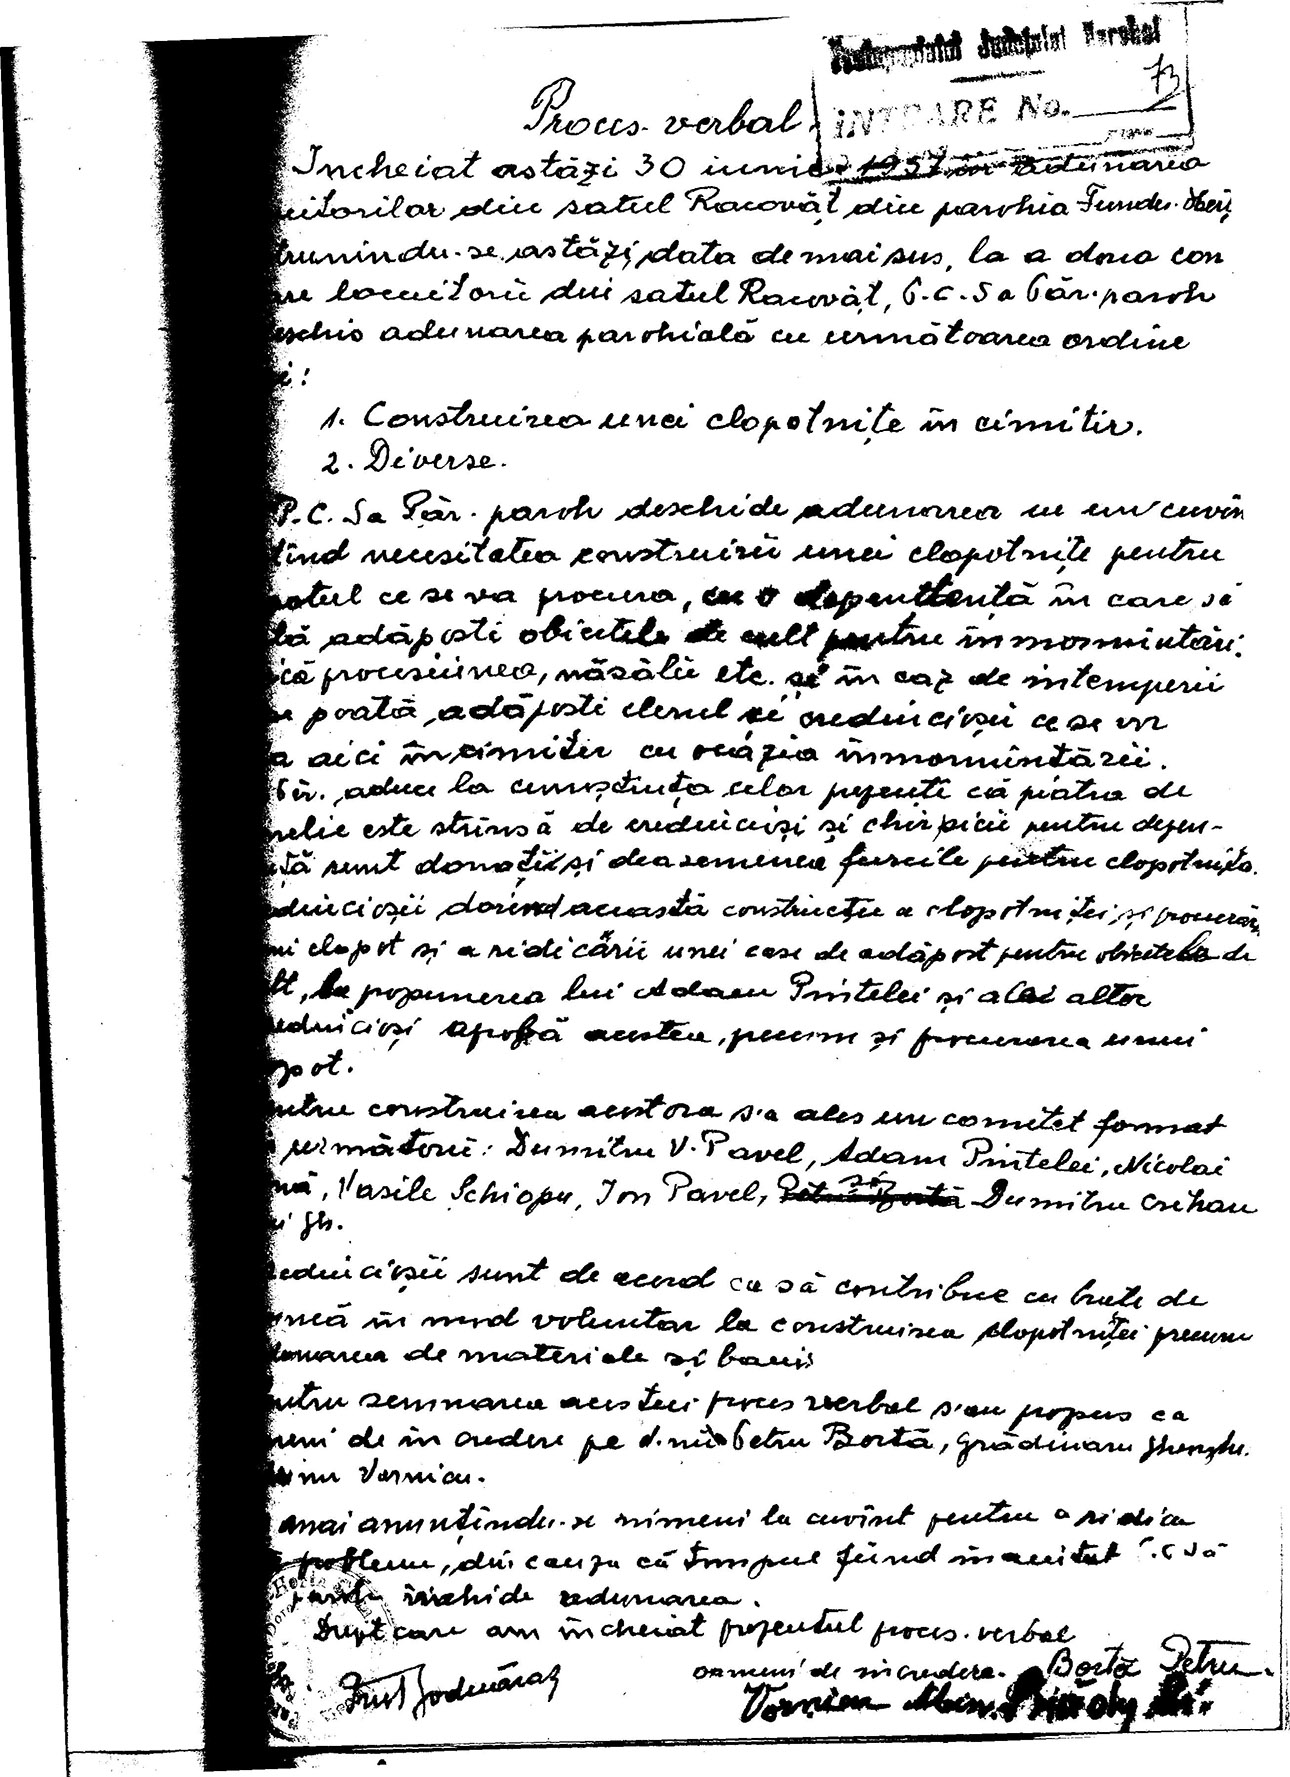 Protopopiatul Județului Dorohoi
INTRARE No. 73
Proces-verbal
Incheiat astăzi 30 iunie 1957 în adunarea
uitorilor din satul Racovăț din parohia Fundu-Herț
trunindu-se astăzi, data de mai sus, la a doua con
are locuitorii din satul Racovăț, P.C. Sa Păr. paroh
eschis adunarea parohială cu următoarea ordine
i:
1. Construirea unei clopotnițe în cimitir.
2. Diverse.
P.C. Sa Păr. paroh deschide adunarea cu un cuvîn
tînd necesitatea construirii unei clopotnițe pentru
potul ce se va procura, cu o dependență în care să
tă adăposti obiectele de cult pentru înmormîntări.
ică procesiunea, năsălii etc. și în caz de intemperii
se poată adăposti clerul și credincioșii ce se vor
a aici în cimitir cu ocazia înmormîntării.
Păr. aduce la cunoștința celor prezenți că piatra de
melie este strînsă de credincioși și chirpicii pentru depen-
ță sunt donații și deasemenea furcile pentru clopotnița.
dincioșii dorind această construcție a clopotniței și procurăr
ui clopot și a ridicării unei case de adăpost pentru obiectele de
lt, la propunerea lui Adam Pintelei și a lui altor
redincioși aprobă acestea, precum și procurarea unui
opot.
entru construirea acestora s-a ales un comitet format
următorii: Dumitru V. Pavel, Adam Pintelei, Nicolai
nă, Vasile Schiopu, Ion Pavel, și Dumitru Crihan
i Gh.
redincioșii sunt de acord ca să contribue cu brațe de
uncă în mod voluntar la construirea clopotniței precum
donarea de materiale și bani
entru semnarea acestui proces verbal s-au propus ca
meni de încredere pe d-nii Petru Bortă, Grădinaru Gheorghe.
Vornicu.
mai anunțîndu-se nimeni la cuvînt pentru a ridica
probleme, din cauza că timpul fiind înaintat P.C. Să
paroh închide adunarea.
Drept care am încheiat prezentul proces-verbal
oameni de încredere. Bortă Petru.
Vornicu